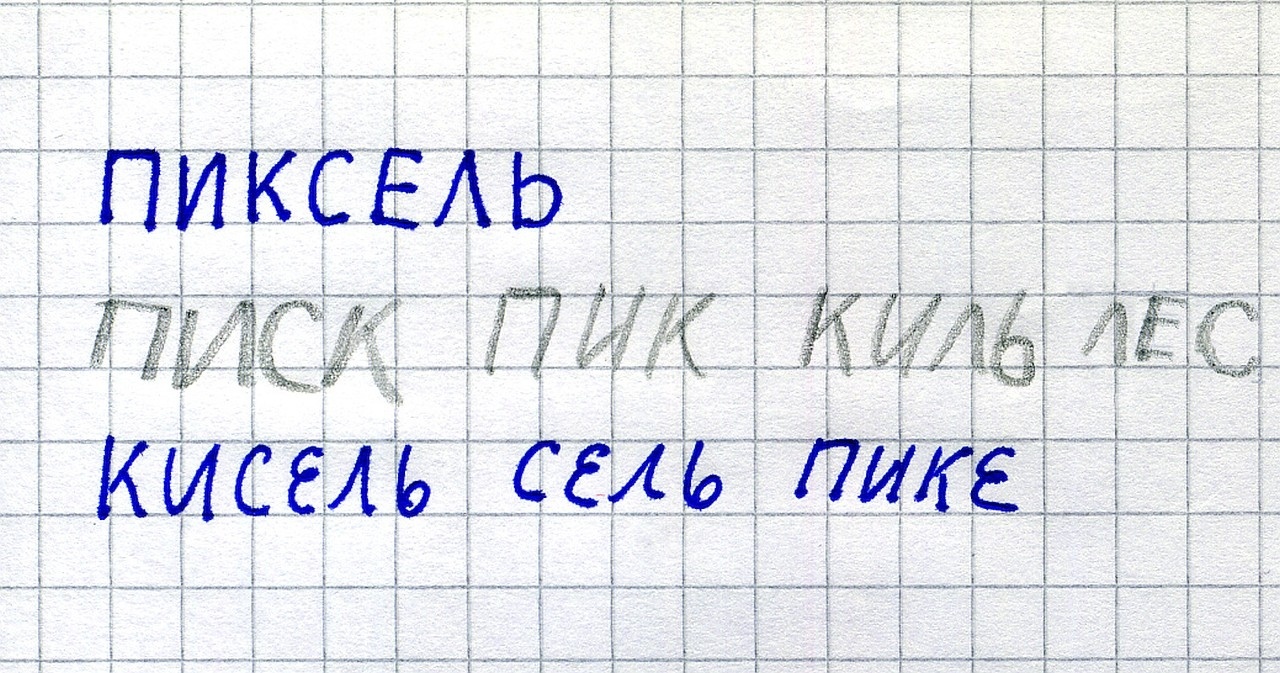 ПИКСЕЛЬ
ПИСК ПИК КИЛЬ ЛЕС
КИСЕЛЬ СЕЛЬ ПИКЕ